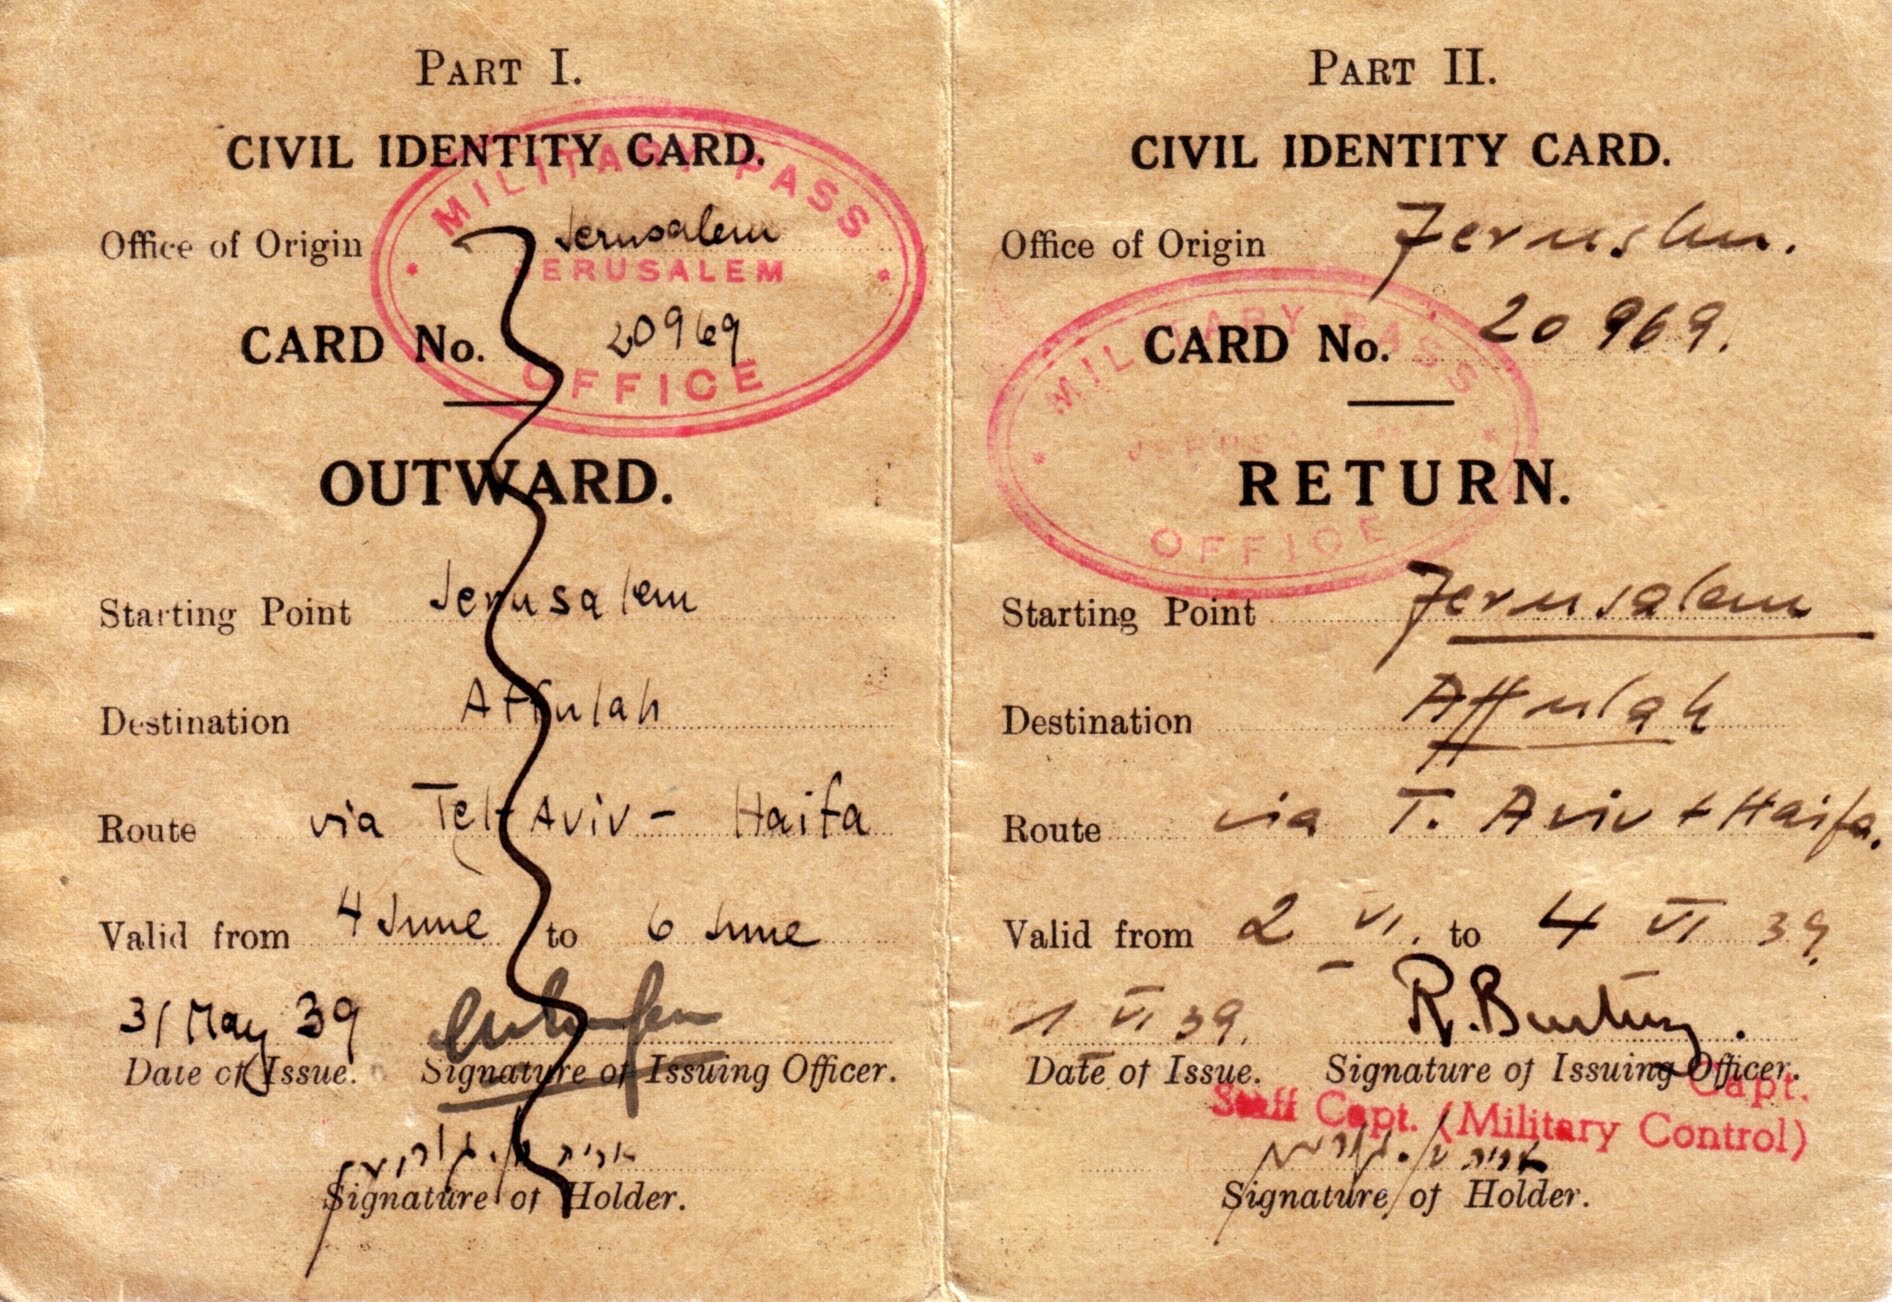 PART I.
CIVIL IDENTITY CARD.
MILITARY PASS
Office of Origin Jerusalem
JERUSALEM
CARD No. 20969
OFFICE
OUTWARD.
Starting Point Jerusalem
Destination Affulah
Route via Tel-Aviv - Haifa
Valid from 4 June to 6 June
31 May 39
Date of Issue. Signature of Issuing Officer.
Signature of Holder.
PART II.
CIVIL IDENTITY CARD.
Office of Origin Jeruslm.
MILITARY PASS
CARD No. 20969.
JERUSALEM
RETURN.
OFFICE
Starting Point Jerusalem
Destination Affulah
Route via T. Aviv + Haifa.
Valid from 2 VI. to 4 VI 39.
1 VI 39. R.
Date of Issue. Signature of Issuing Officer.
Capt.
Staff Capt. (Military Control)
Signature of Holder.